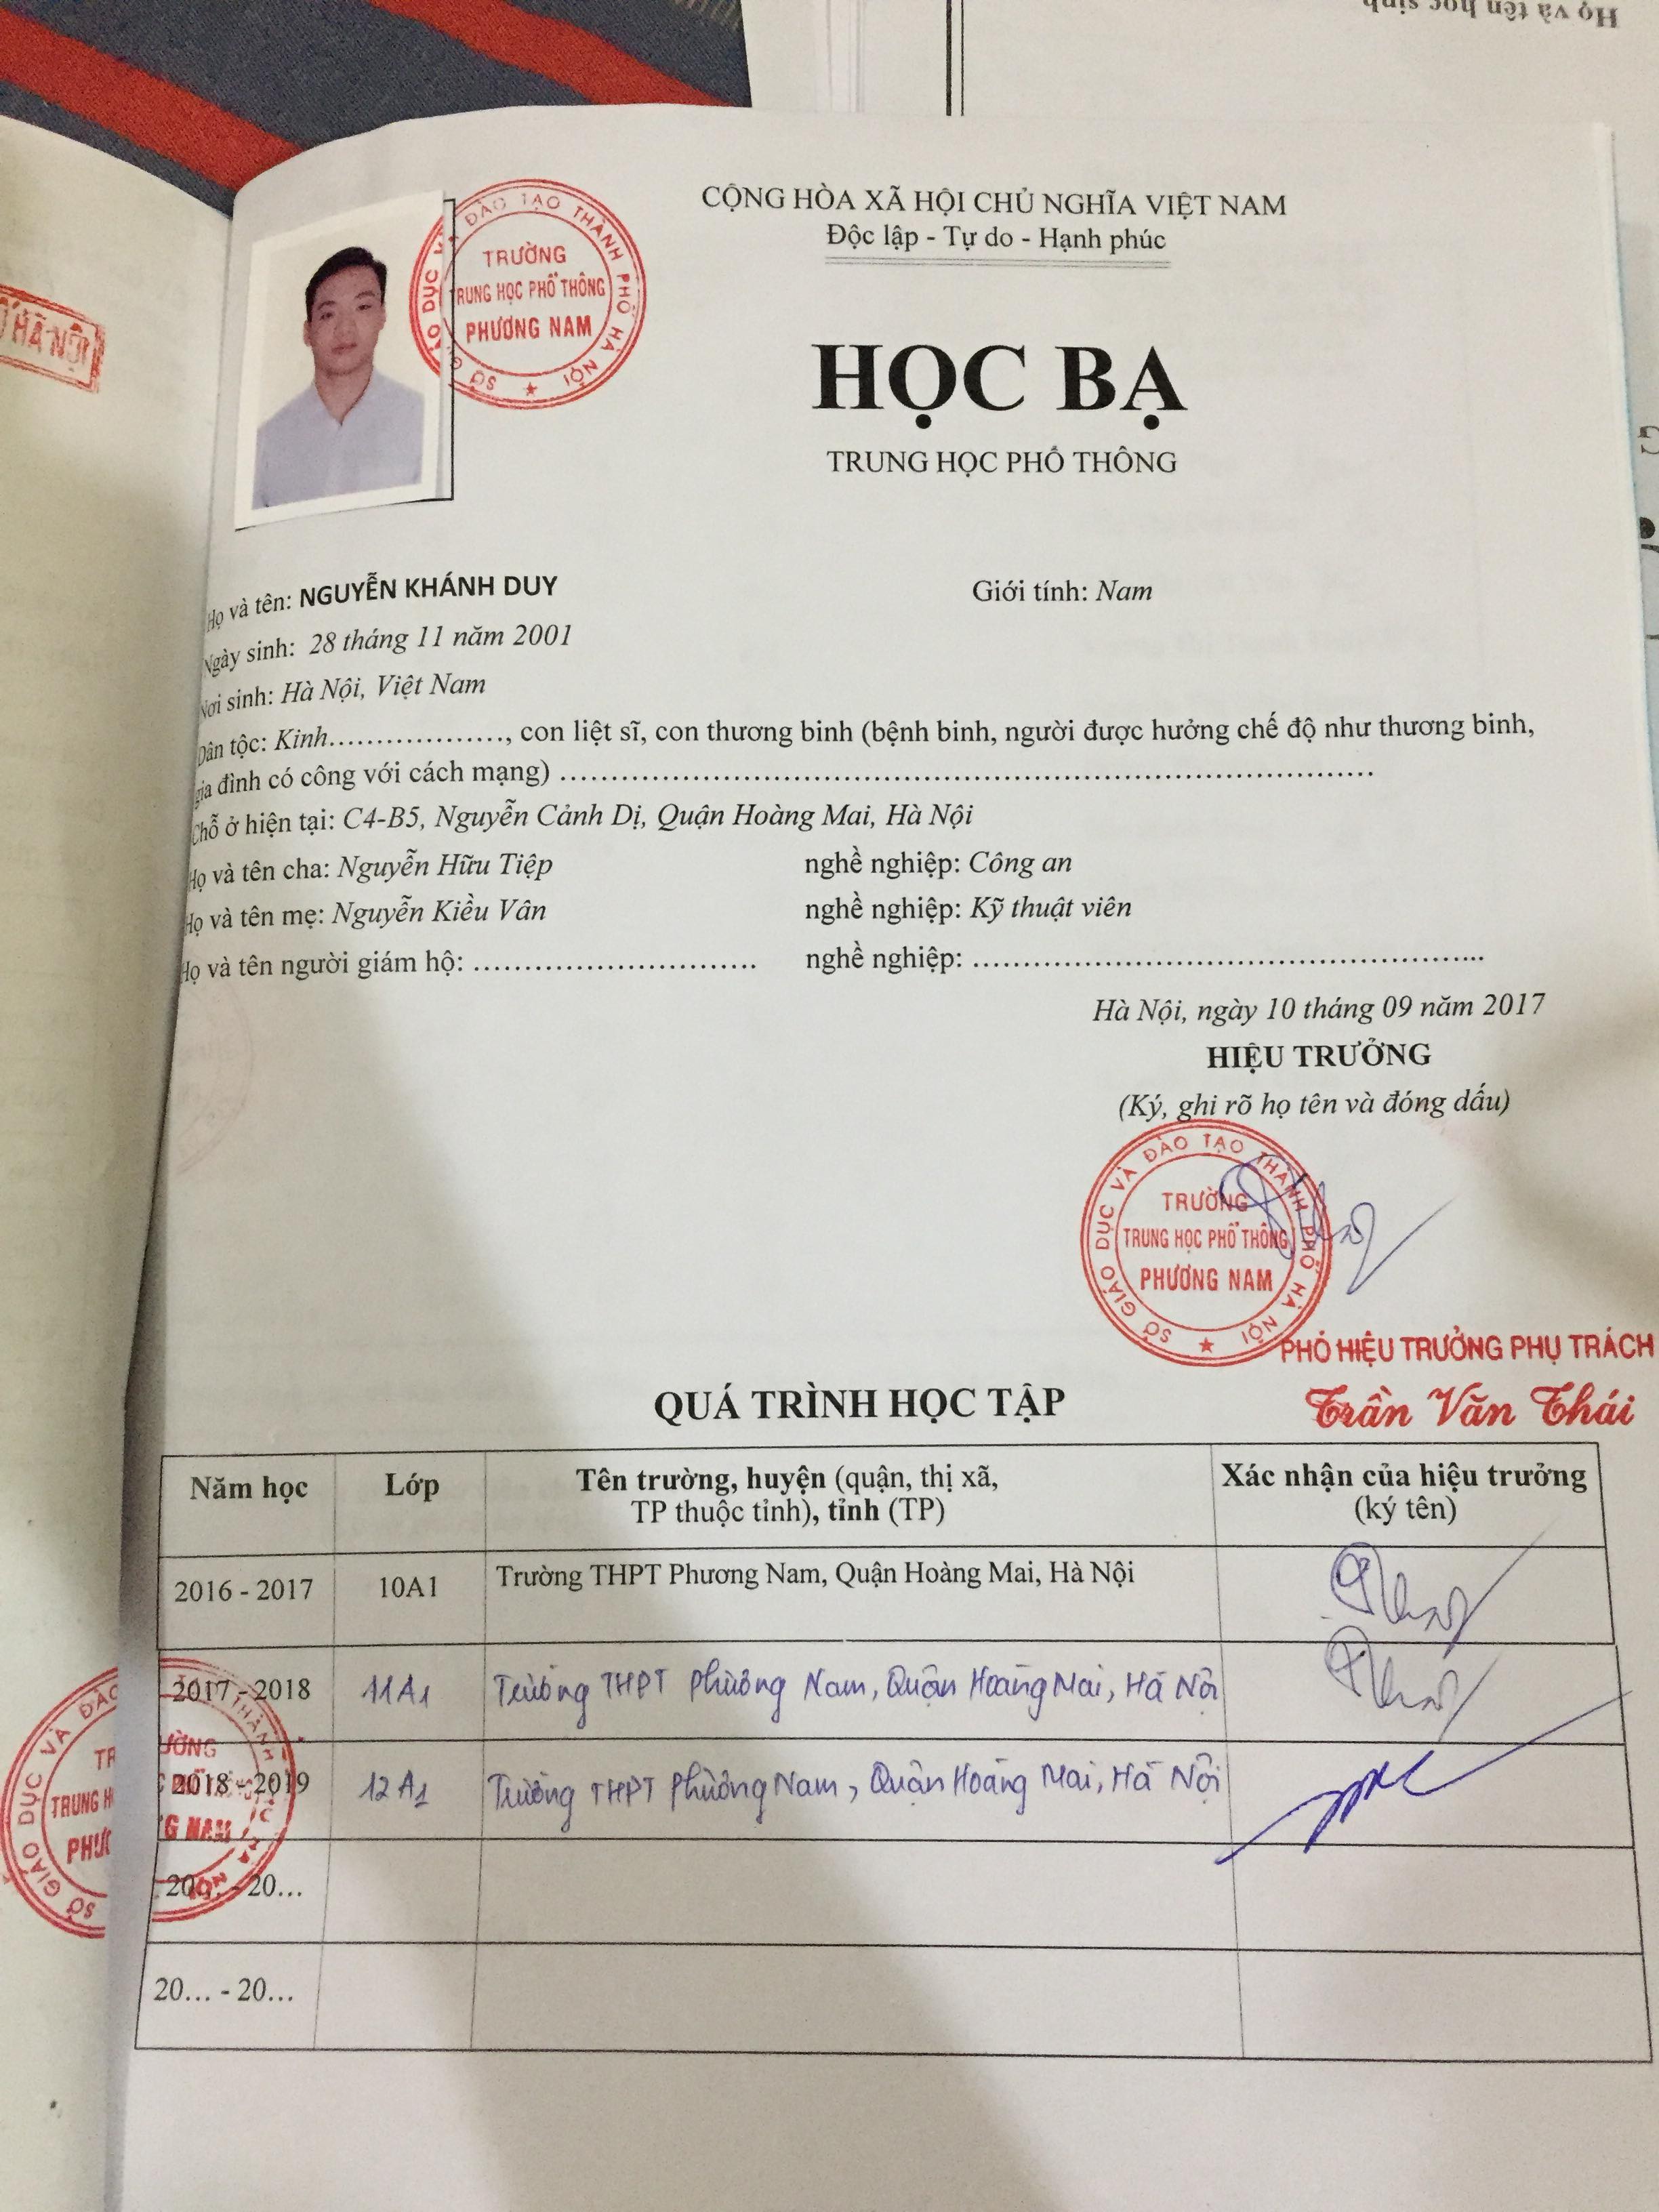 Họ và tên học sinh
HÀ NỘI
SỞ GIÁO DỤC VÀ ĐÀO TẠO THÀNH PHỐ HÀ NỘI
TRƯỜNG
TRUNG HỌC PHỔ THÔNG
PHƯƠNG NAM
CỘNG HÒA XÃ HỘI CHỦ NGHĨA VIỆT NAM
Độc lập - Tự do - Hạnh phúc
HỌC BẠ
TRUNG HỌC PHỔ THÔNG
Họ và tên: NGUYỄN KHÁNH DUY Giới tính: Nam
Ngày sinh: 28 tháng 11 năm 2001
Nơi sinh: Hà Nội, Việt Nam
Dân tộc: Kinh..................., con liệt sĩ, con thương binh (bệnh binh, người được hưởng chế độ như thương binh,
gia đình có công với cách mạng) ..........................................................................................
Chỗ ở hiện tại: C4-B5, Nguyễn Cảnh Dị, Quận Hoàng Mai, Hà Nội
Họ và tên cha: Nguyễn Hữu Tiệp nghề nghiệp: Công an
Họ và tên mẹ: Nguyễn Kiều Vân nghề nghiệp: Kỹ thuật viên
Họ và tên người giám hộ: ............................... nghề nghiệp: .........................................................
Hà Nội, ngày 10 tháng 09 năm 2017
HIỆU TRƯỞNG
(Ký, ghi rõ họ tên và đóng dấu)
SỞ GIÁO DỤC VÀ ĐÀO TẠO THÀNH PHỐ HÀ NỘI
TRƯỜNG
TRUNG HỌC PHỔ THÔNG
PHƯƠNG NAM
PHÓ HIỆU TRƯỞNG PHỤ TRÁCH
Trần Văn Thái
QUÁ TRÌNH HỌC TẬP
Năm học Lớp Tên trường, huyện (quận, thị xã, Xác nhận của hiệu trưởng
TP thuộc tỉnh), tỉnh (TP) (ký tên)
2016 - 2017 10A1 Trường THPT Phương Nam, Quận Hoàng Mai, Hà Nội
2017 - 2018 11A1 Trường THPT Phương Nam, Quận Hoàng Mai, Hà Nội
2018 - 2019 12A1 Trường THPT Phương Nam, Quận Hoàng Mai, Hà Nội
20... - 20...
20... - 20...